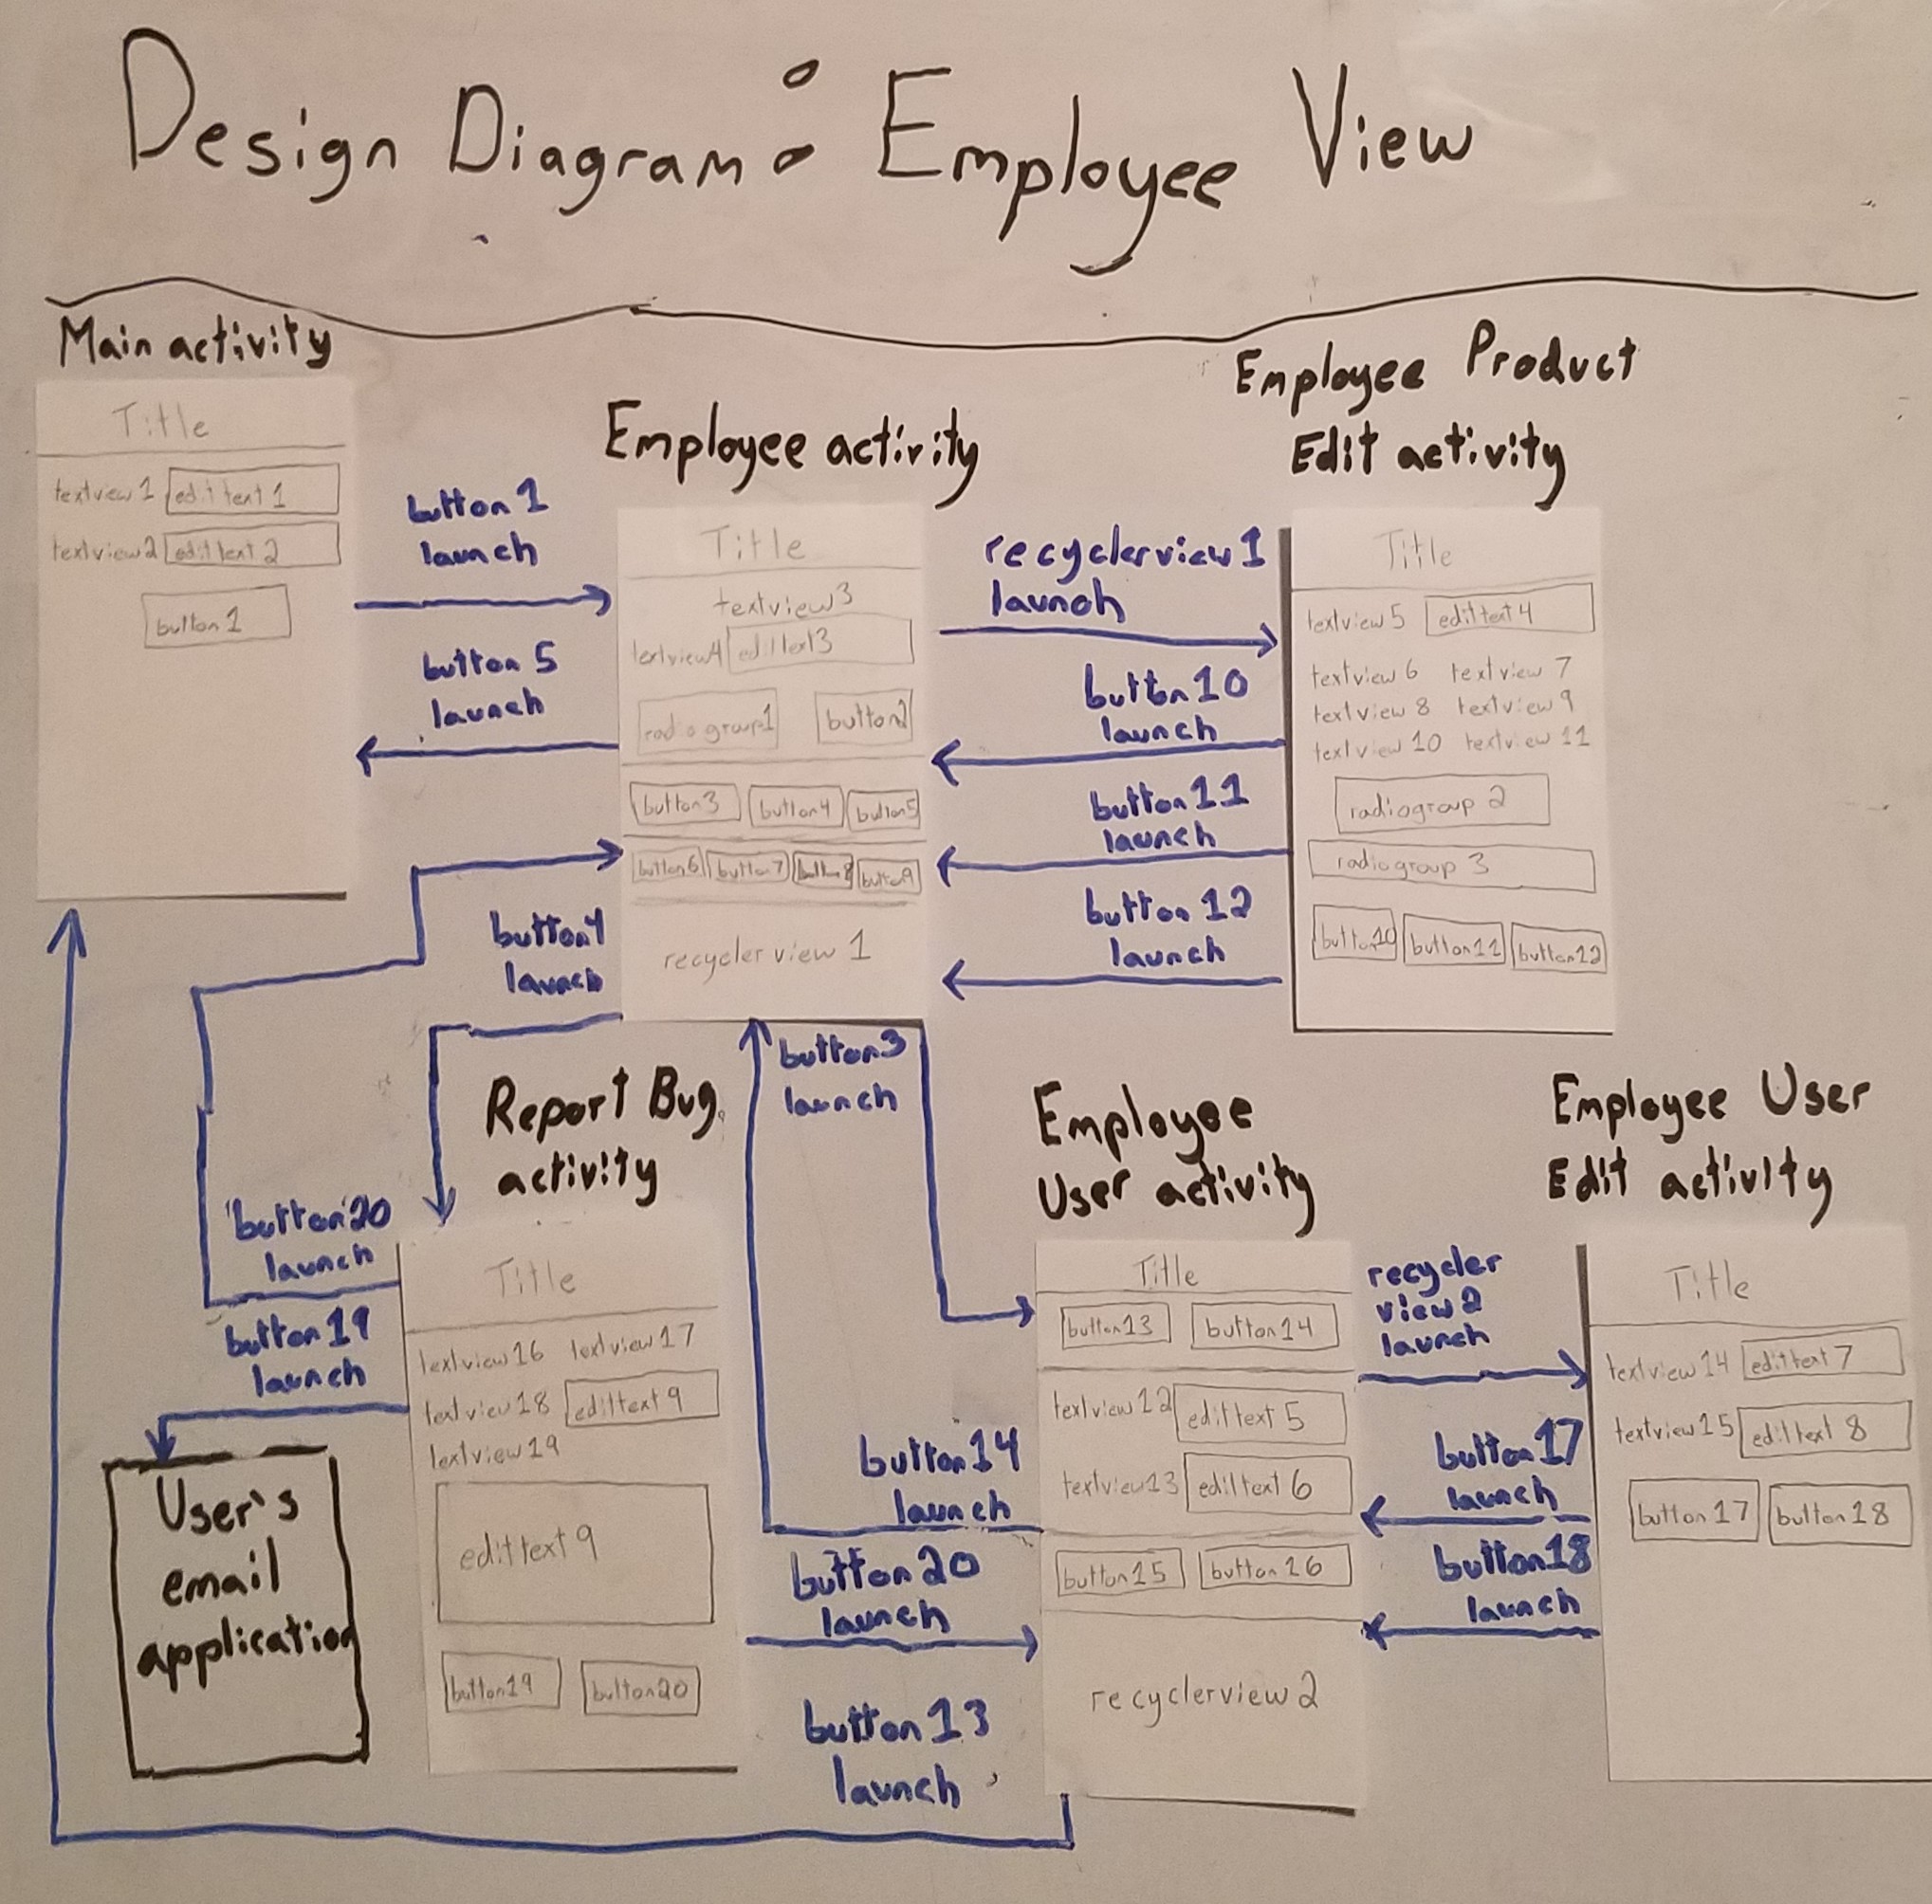 Design Diagram: Employee View
Main activity
Title
textview1 edittext1
textview2 edittext2
button1
button1
launch
button5
launch
Employee activity
Title
textview3
textview4 edittext3
radiogroup1 button2
button3 button4 button5
button6 button7 button8 button9
recyclerview 1
recyclerview1
launch
button10
launch
button11
launch
button12
launch
Employee Product
Edit activity
Title
textview5 edittext4
textview6 textview7
textview8 textview9
textview10 textview11
radiogroup 2
radiogroup 3
button10 button11 button12
button4
launch
button3
launch
Report Bug
activity
button20
launch
button19
launch
Title
textview16 textview17
textview18 edittext9
textview19
edittext9
button19 button20
User's
email
application
Employee
User activity
Title
button13 button14
textview12 edittext5
textview13 edittext6
button15 button16
recyclerview2
button14
launch
button20
launch
button13
launch
recycler
view2
launch
button17
launch
button18
launch
Employee User
Edit activity
Title
textview14 edittext7
textview15 edittext8
button17 button18